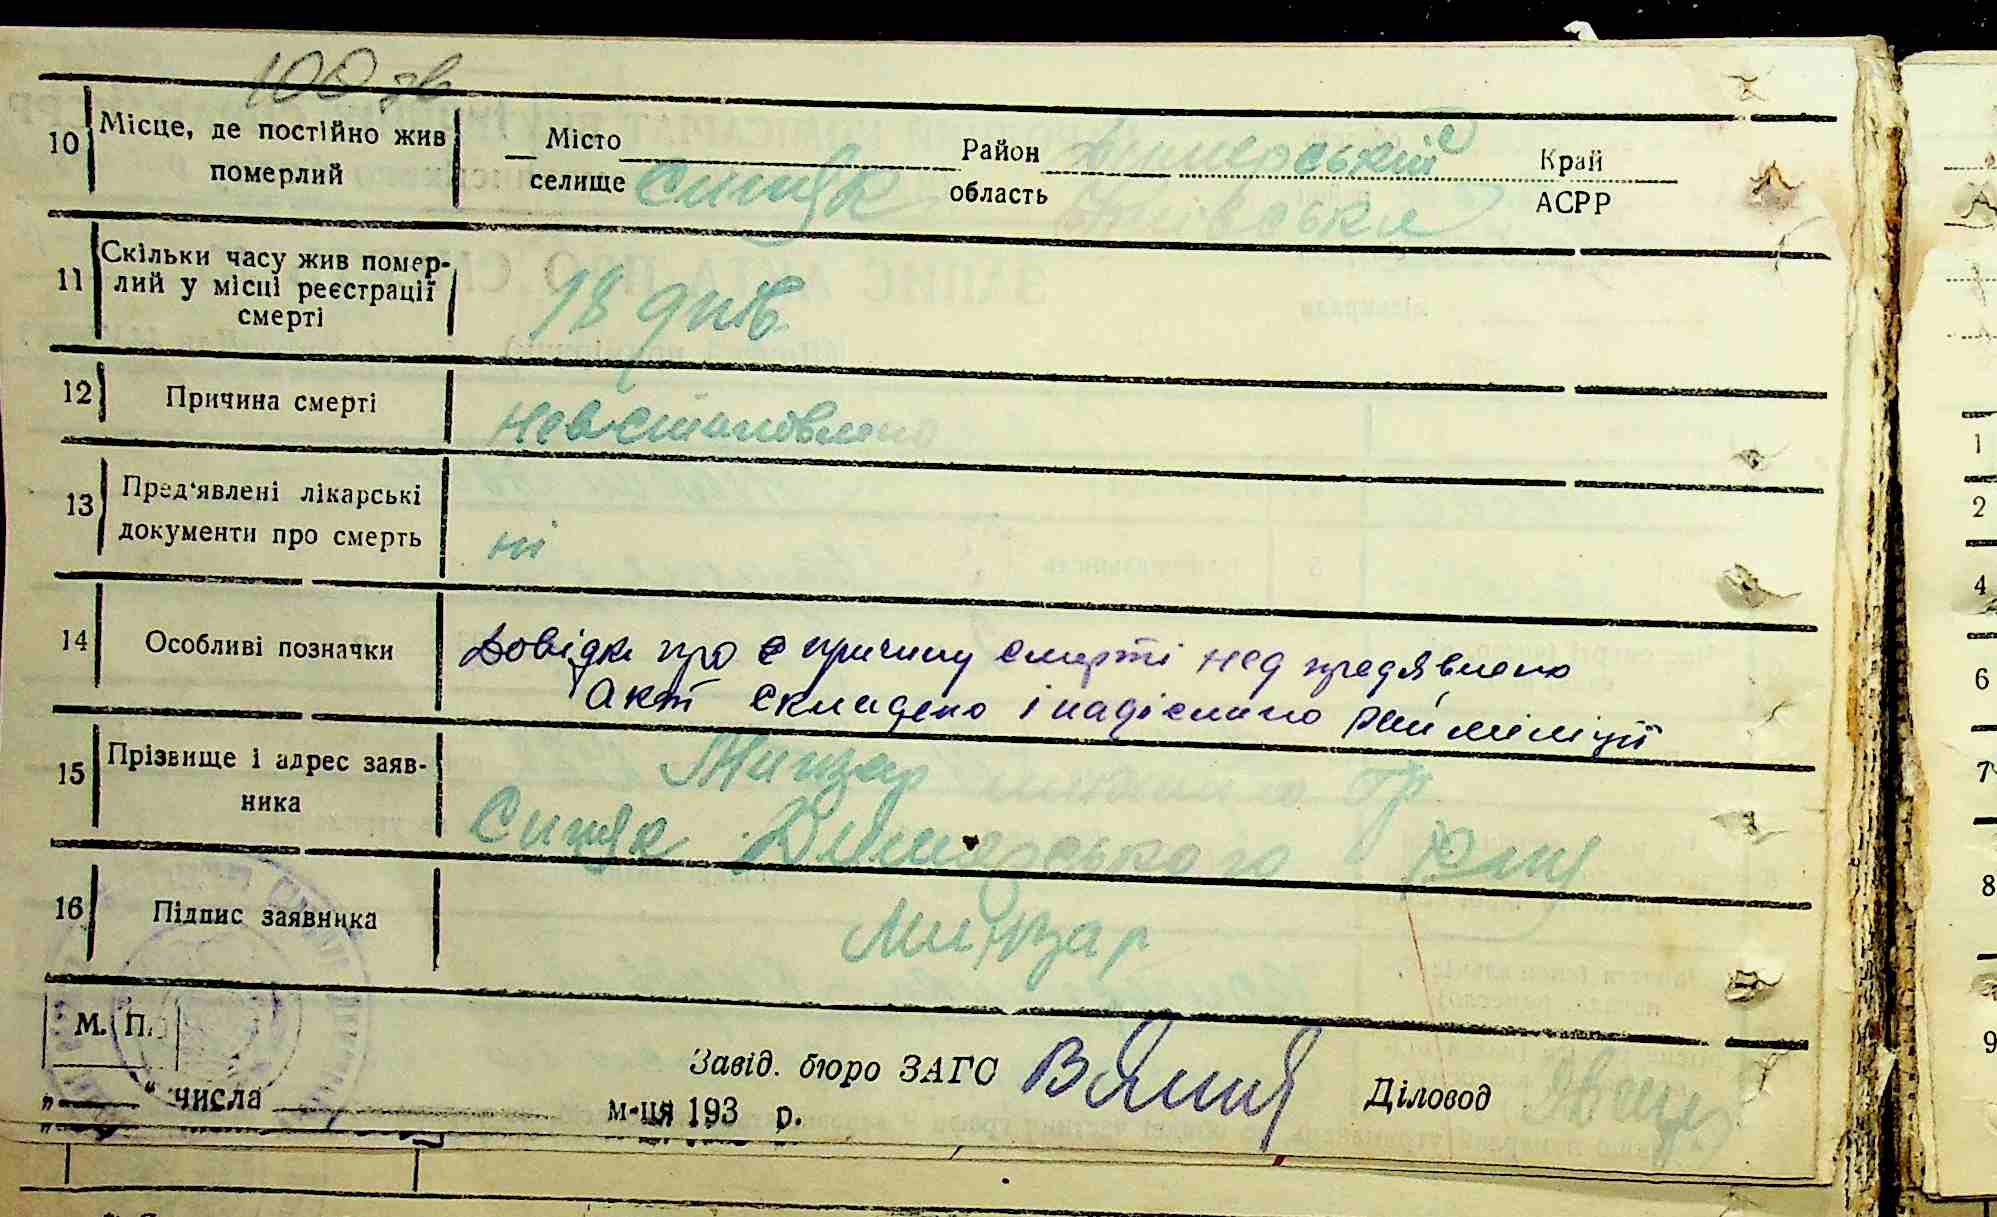 100 зв
10 Місце, де постійно жив померлий
Місто селище Синяк Район Димерський область Київська Край АСРР
11 Скільки часу жив помер-
лий у місці реєстрації
смерті
18 днів
12 Причина смерті невстановлено
13 Пред'явлені лікарські
документи про смерть
ні
14 Особливі позначки
Довідк про с причину смерті не предявлено
акт складено і надіслано рай міліції
15 Прізвище і адрес заяв-
ника
Минзар Гр
Синяк Димерського
16 Підпис заявника Минзар
М. П.
Завід. бюро ЗАГС Діловод
„ “ числа м-ця 193 р.
1
2
4
6
7
8
9